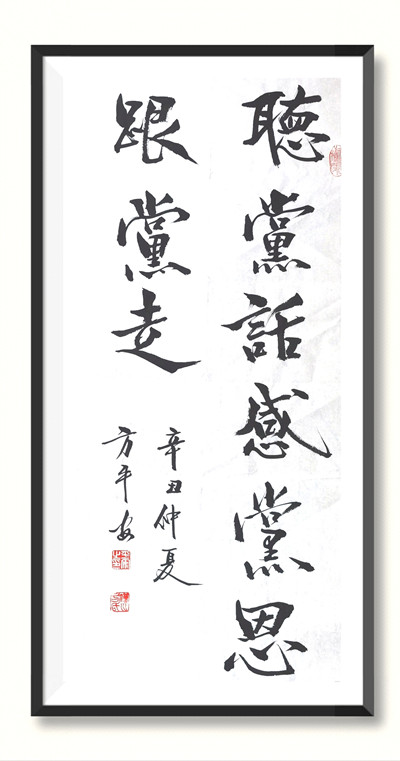 聽黨話感黨恩
跟黨走
辛丑仲夏
方平安